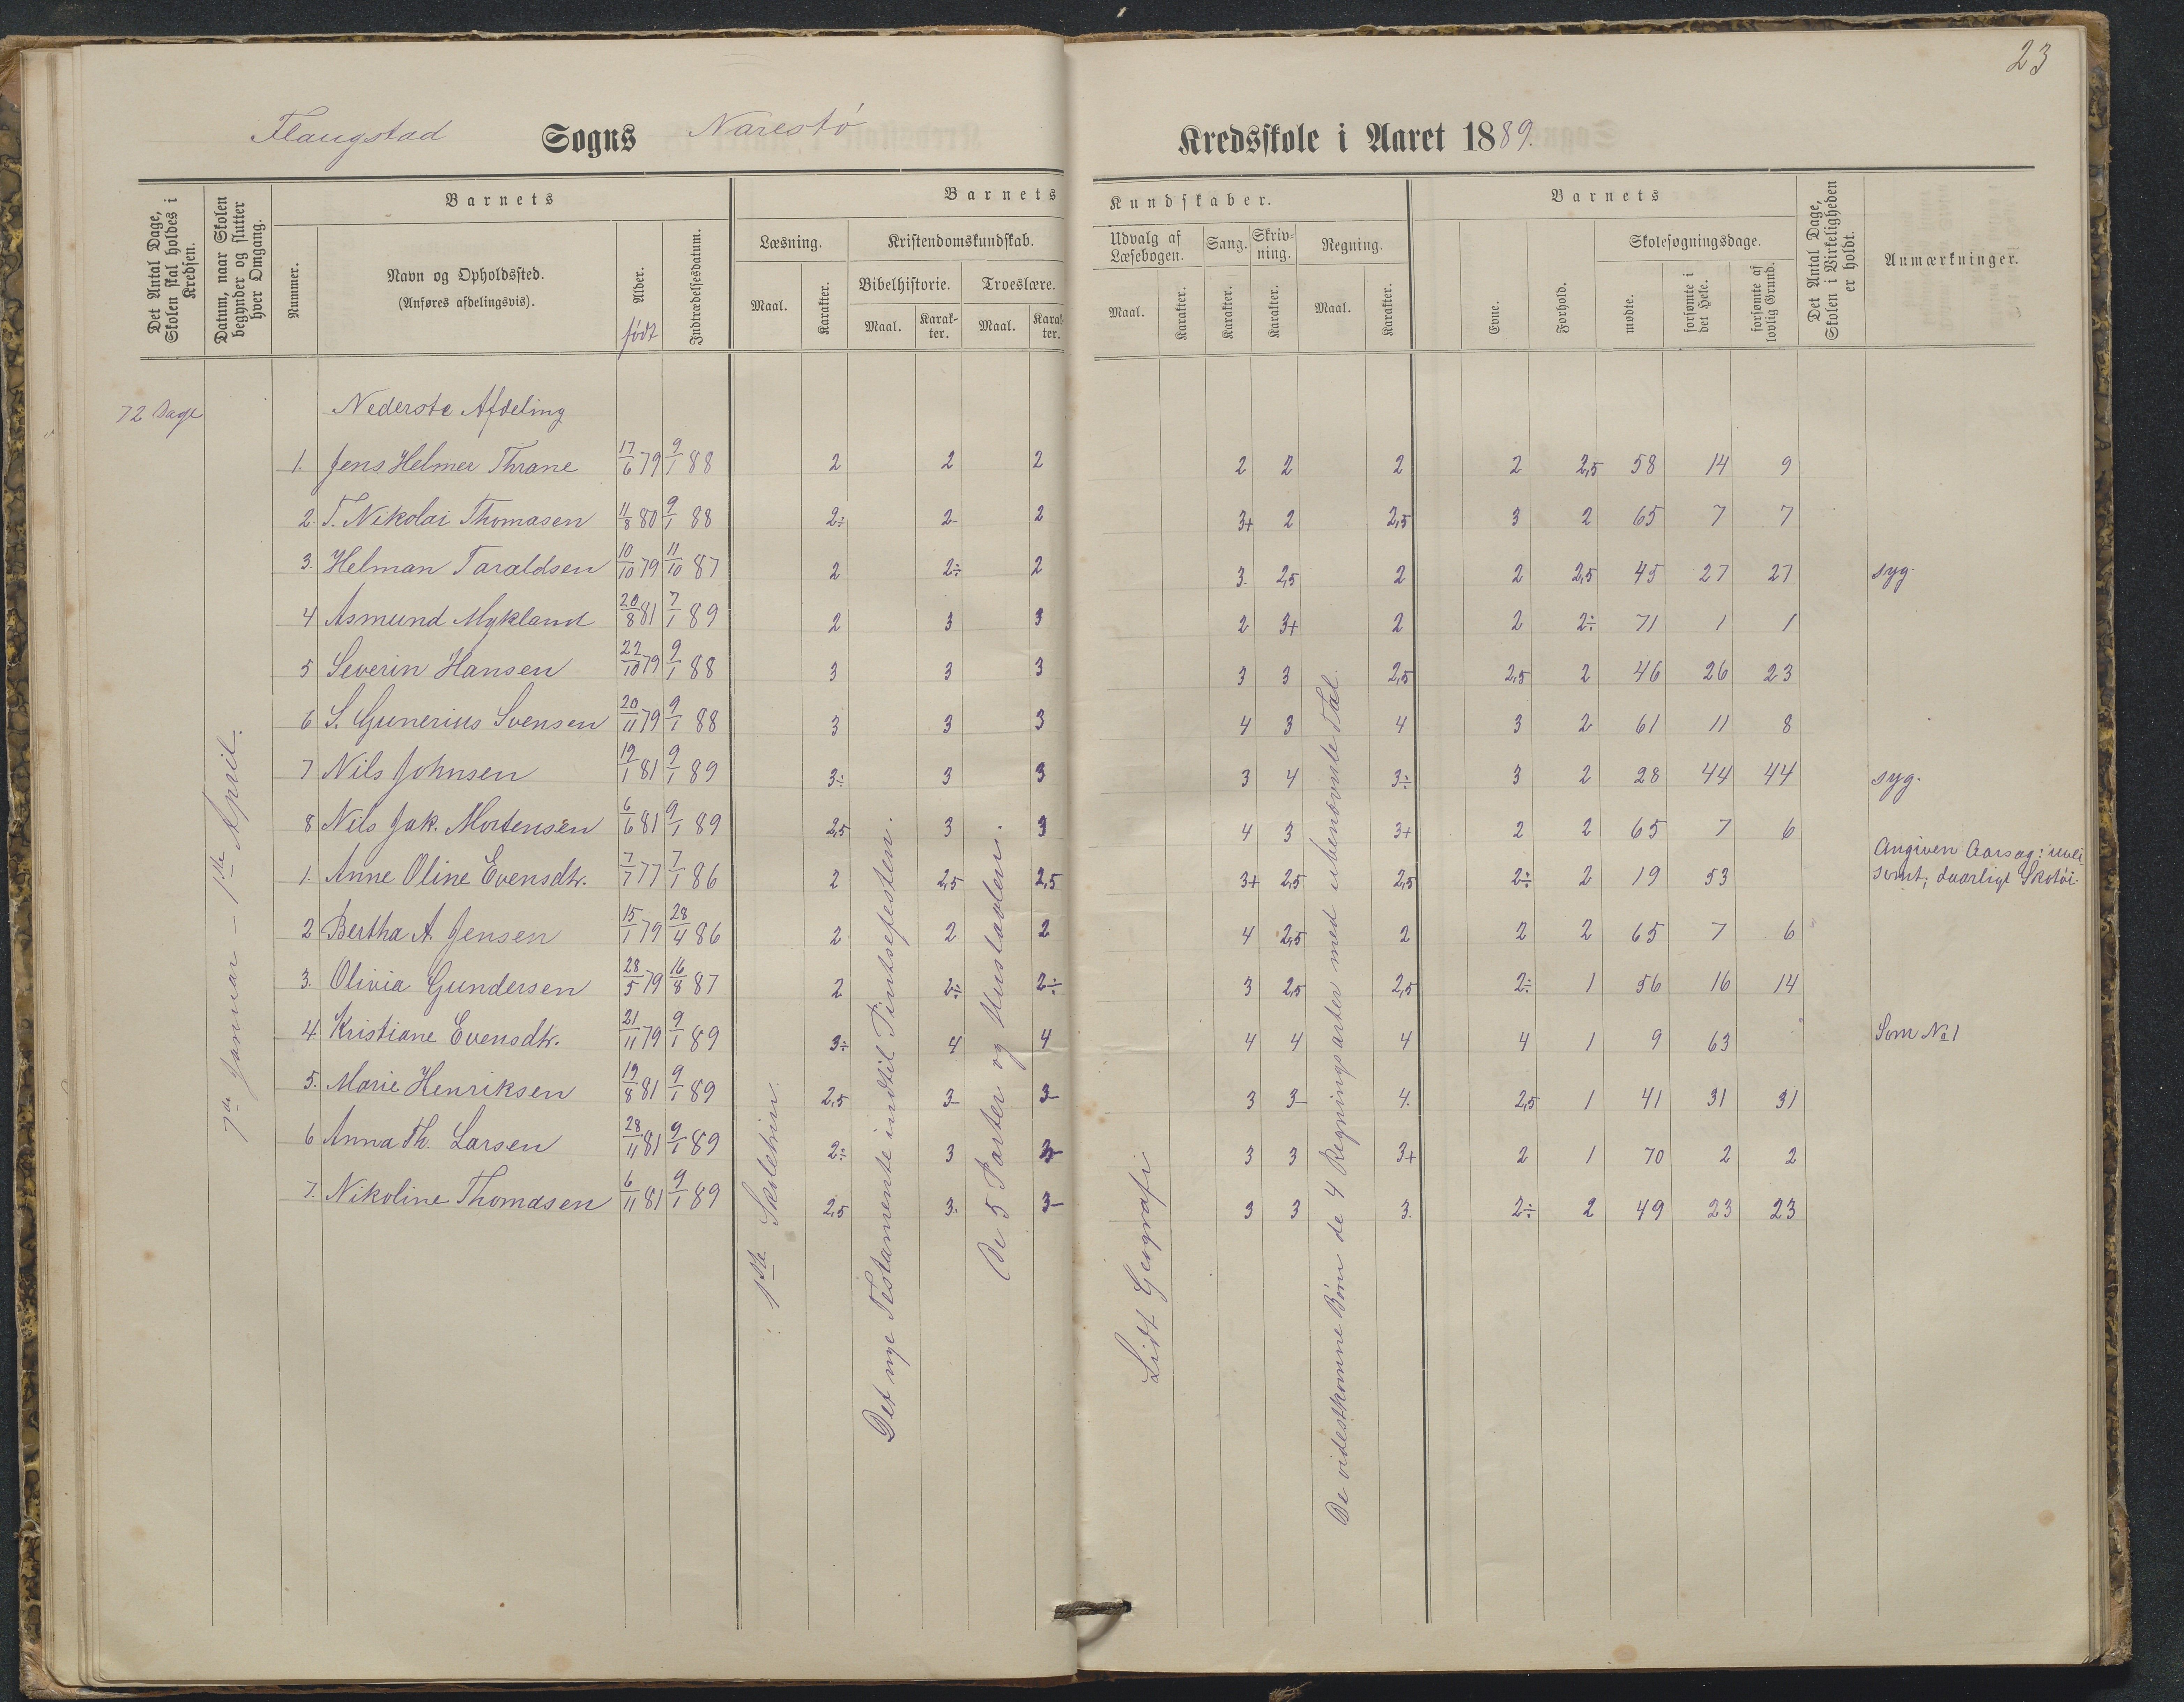 23
Flaugstad Sogns Narestø Kredsskole i Aaret 1889.
Det Antal Dage, Skolen skal holdes i Kredsen.
Datum, naar Skolen begynder og slutter hver Omgang.
Nummer.
Barnets
Navn og Opholdssted.
(Anføres afdelingsvis).
Alder.
født
Indtrædelsesdatum.
Barnets Kundskaber.
Læsning.
Maal. Karakter.
Kristendomskundskab.
Bibelhistorie. Troeslære.
Maal. Karakter. Maal. Karakter.
Udvalg af Læsebogen.
Maal. Karakter.
Sang.
Karakter.
Skrivning.
Karakter.
Regning.
Maal. Karakter.
Barnets
Evne. Forhold.
Skolesøgningsdage.
mødte. forsømte i det Hele. forsømte af lovlig Grund.
Det Antal Dage, Skolen i Virkeligheden er holdt.
Anmærkninger.
72 Dage
Nederste Afdeling
1. Jens Helmer Thrane 17/6 79 9/1 88 2 2 2 2 2 2 2 2,5 58 14 9
2. T. Nikolai Thomasen 11/8 80 9/1 88 2÷ 2- 2 3+ 2 2,5 3 2 65 7 7
3. Helman Taraldsen 10/10 79 11/10 87 2 2÷ 2 3. 2,5 2 2 2,5 45 27 27 syg.
4 Asmund Mykland 20/8 81 7/1 89 2 3 3 2 3+ 2 2 2÷ 71 1 1
5 Severin Hansen 22/10 79 9/1 88 3 3 3 3 3 2,5 2,5 2 46 26 23
6 S. Gunerius Svensen 20/11 79 9/1 88 3 3 3 4 3 4 3 2 61 11 8
7 Nils Johnsen 19/1 81 9/1 89 3÷ 3 3 3 4 3÷ 3 2 28 44 44 syg.
8 Nils Jak. Mortensen 6/6 81 9/1 89 2,5 3 3 4 3 3+ 2 2 65 7 6
1. Anne Oline Evensdtr. 7/7 77 7/1 86 2 2,5 2,5 3+ 2,5 2,5 2÷ 2 19 53 Angiven Aarsag: uvei
somt; daarligt Skotøi.
2 Bertha A. Jensen 15/1 79 28/4 86 2 2 2 4 2,5 2 2 2 65 7 6
3. Olivia Gundersen 28/5 79 16/8 87 2 2÷ 2÷ 3 2,5 2,5 2÷ 1 56 16 14
4. Kristiane Evensdtr. 21/11 79 9/1 89 3÷ 4 4 4 4 4 4 1 9 63 Som No 1
5. Marie Henriksen 19/8 81 9/1 89 2,5 3- 3- 3 3- 4. 2,5 1 41 31 31
6 Anna Th. Larsen 28/11 81 9/1 89 2÷ 3 3 3 3+ 2 1 70 2 2
7. Nikoline Thomasen 6/11 81 9/1 89 2,5 3. 3- 3 3 3. 2÷ 2 49 23 23
7de Januar – 1ste April.
1ste Skoletrin
Det nye Testamente indtil Pintsefesten.
De 5 Parter og Hustavlen.
Lidt Geografi
De videstkomne Børn de 4 Regningsarter med ubenævnte Tal.